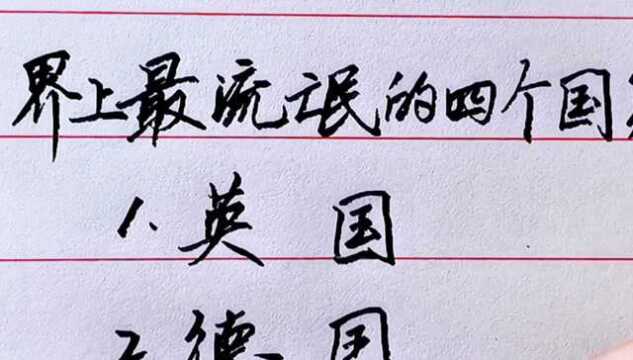 界上最流氓的四个国
1.英国
2.德国